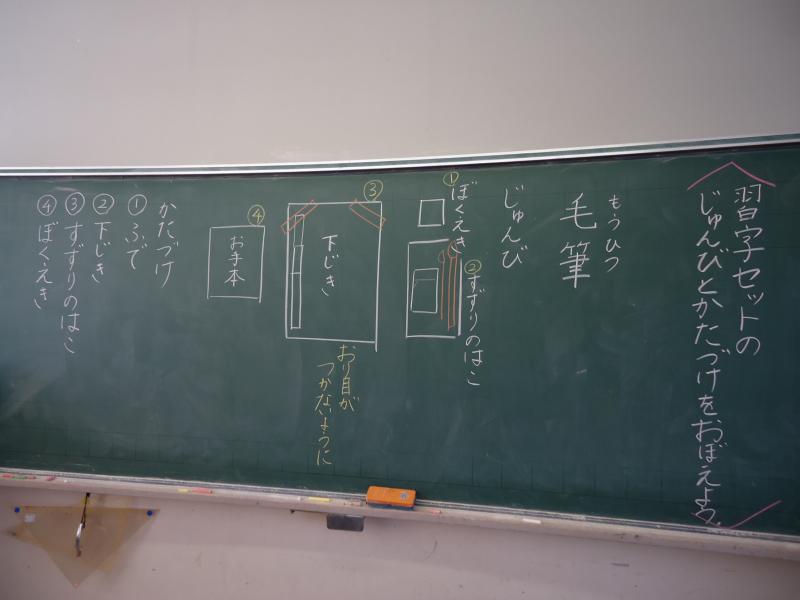 習字セットの
じゅんびとかたづけをおぼえよう。
もうひつ
毛筆
じゅんび
①ぼくえき
②すずりのはこ
③
下じき
おり目が
つかないように
④
お手本
かたづけ
①ふで
②下じき
③すずりのはこ
④ぼくえき